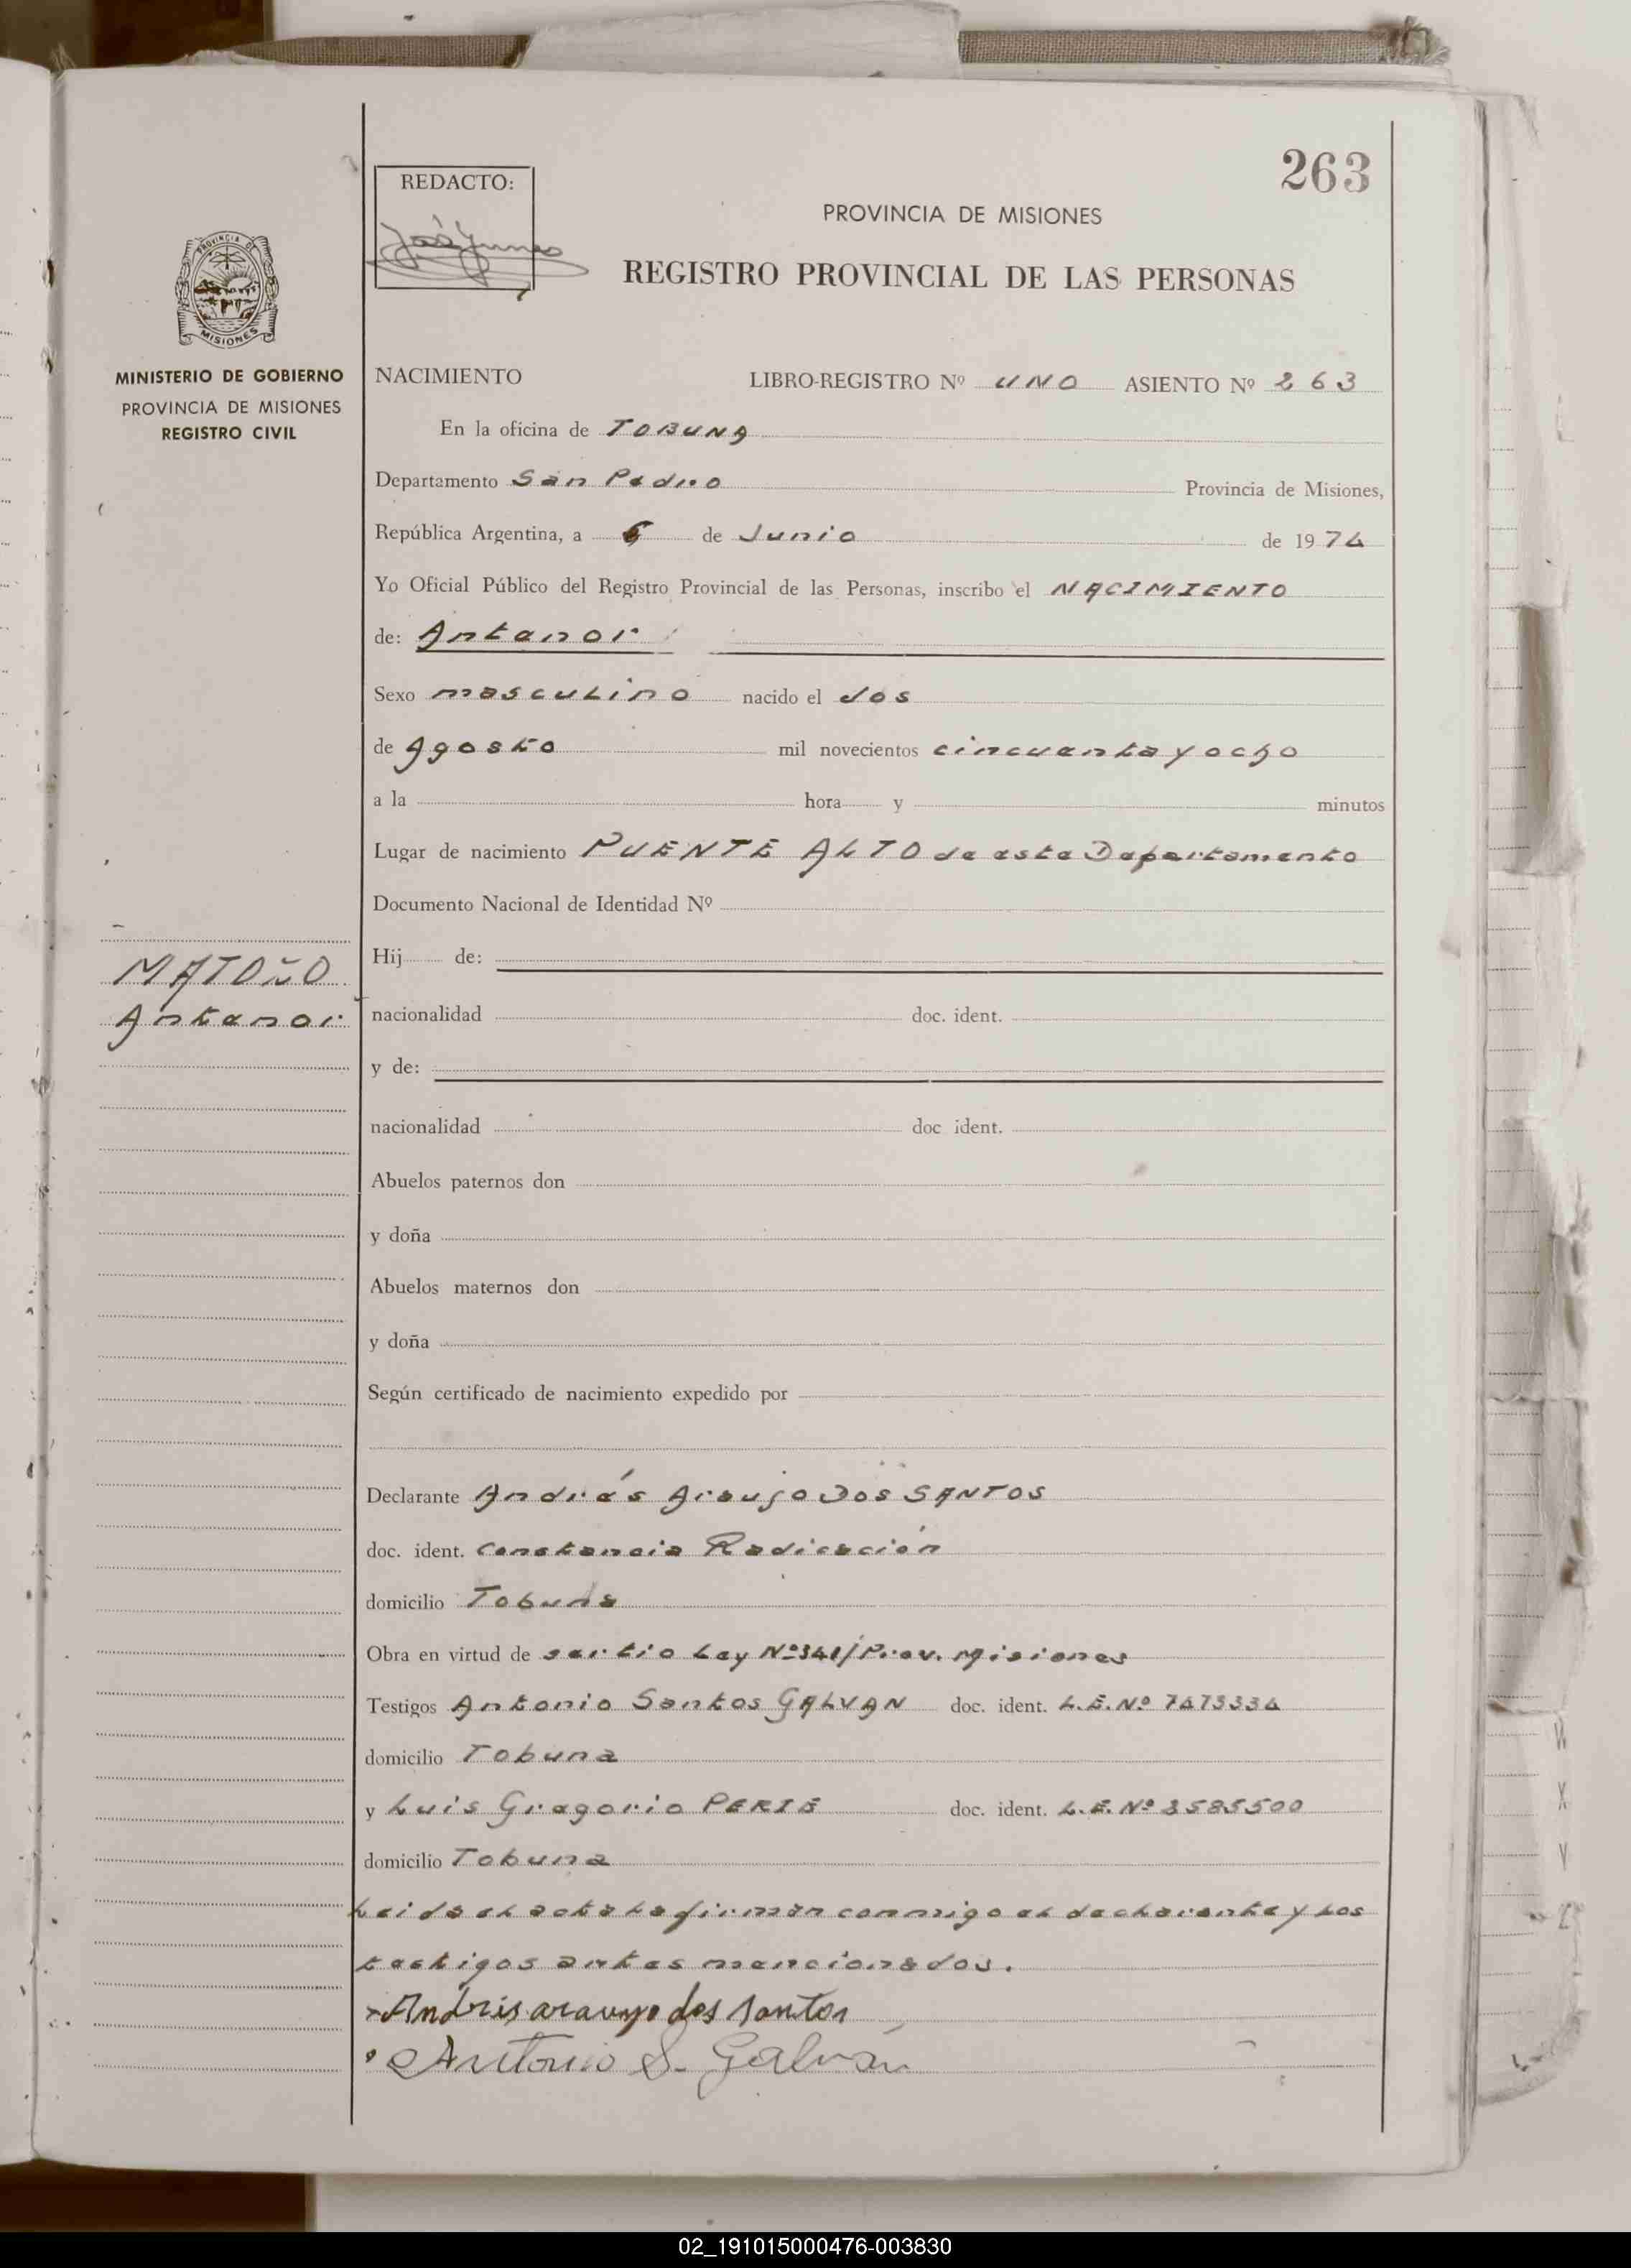 263
REDACTO:
PROVINCIA DE MISIONES
REGISTRO PROVINCIAL DE LAS PERSONAS
PROVINCIA DE
MISIONES
MINISTERIO DE GOBIERNO
PROVINCIA DE MISIONES
REGISTRO CIVIL
NACIMIENTO LIBRO-REGISTRO Nº UNO ASIENTO Nº 263
En la oficina de TOBUNA
Departamento San Pedro Provincia de Misiones,
República Argentina, a de Junio de 1974
Yo Oficial Público del Registro Provincial de las Personas, inscribo el NACIMIENTO
de: Antenor
Sexo masculino nacido el dos
de Agosto mil novecientos cincuenta y ocho
a la hora y minutos
Lugar de nacimiento PUENTE ALTO de este Departamento
Documento Nacional de Identidad Nº
Hij de:
MATOÑO
Antenor
nacionalidad doc. ident.
y de:
nacionalidad doc ident.
Abuelos paternos don
y doña
Abuelos maternos don
y doña
Según certificado de nacimiento expedido por
Declarante Andrés Araujo Dos SANTOS
doc. ident. Constancia Radicación
domicilio Tobuna
Obra en virtud de Ley Nº 341/Prov. Misiones
Testigos Antonio Santos GALVAN doc. ident. L.E. Nº 7473334
domicilio Tobuna
y Luis Gregorio PERIE doc. ident. L.E. Nº 3585500
domicilio Tobuna
Leida el acta la firman conmigo el declarante y los
testigos antes mencionados.
Andris araujo dos santos
Antonio S. Galván
02_191015000476-003830